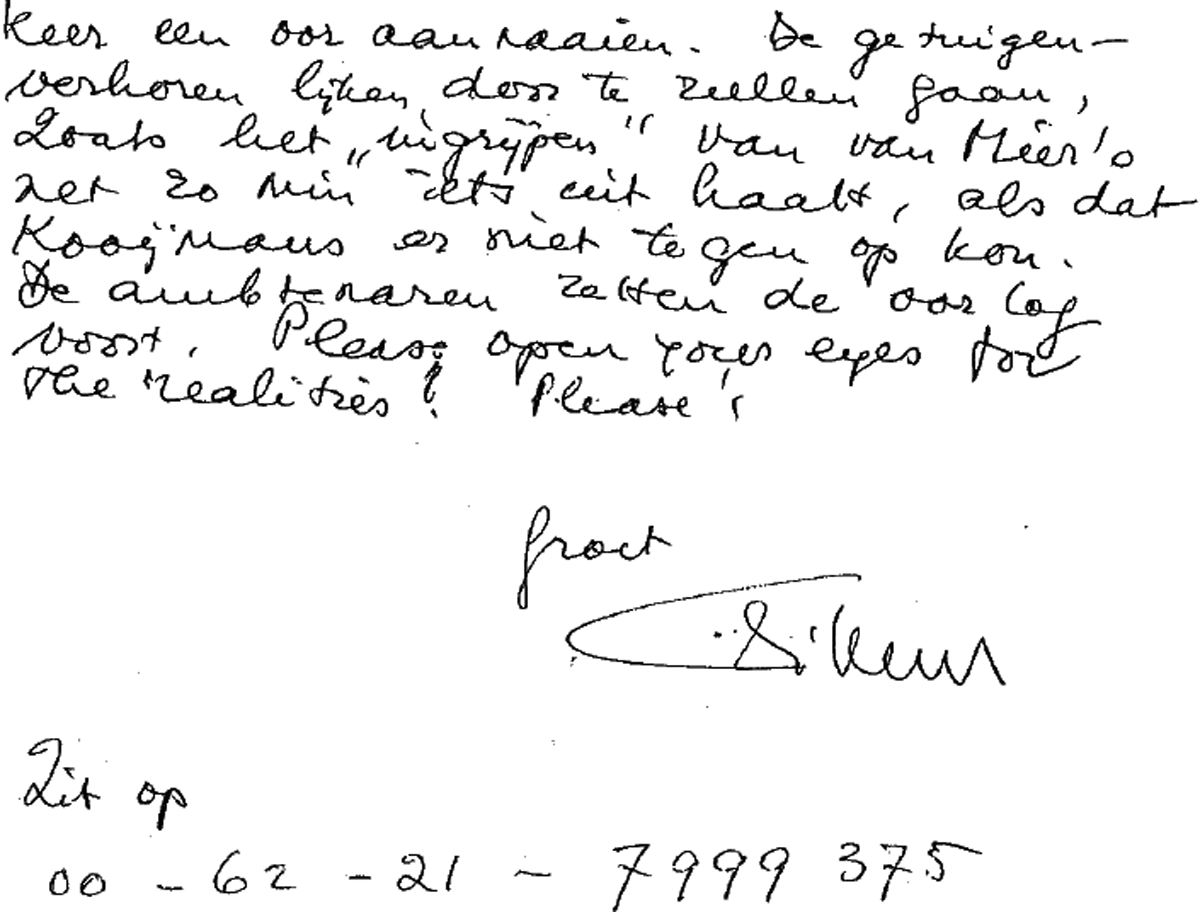 keer een oor aannaaien. De getuigen-
verhoren lijken door te zullen gaan,
zoals het „ingrijpen" van van Mier's
net zo min iets uit haalt, als dat
Kooijmans er niet tegen op kon.
De ambtenaren zetten de oorlog
voort. Please open your eyes for
the realities! Please!
Groet
Zit op
00 - 62 - 21 - 7999 375